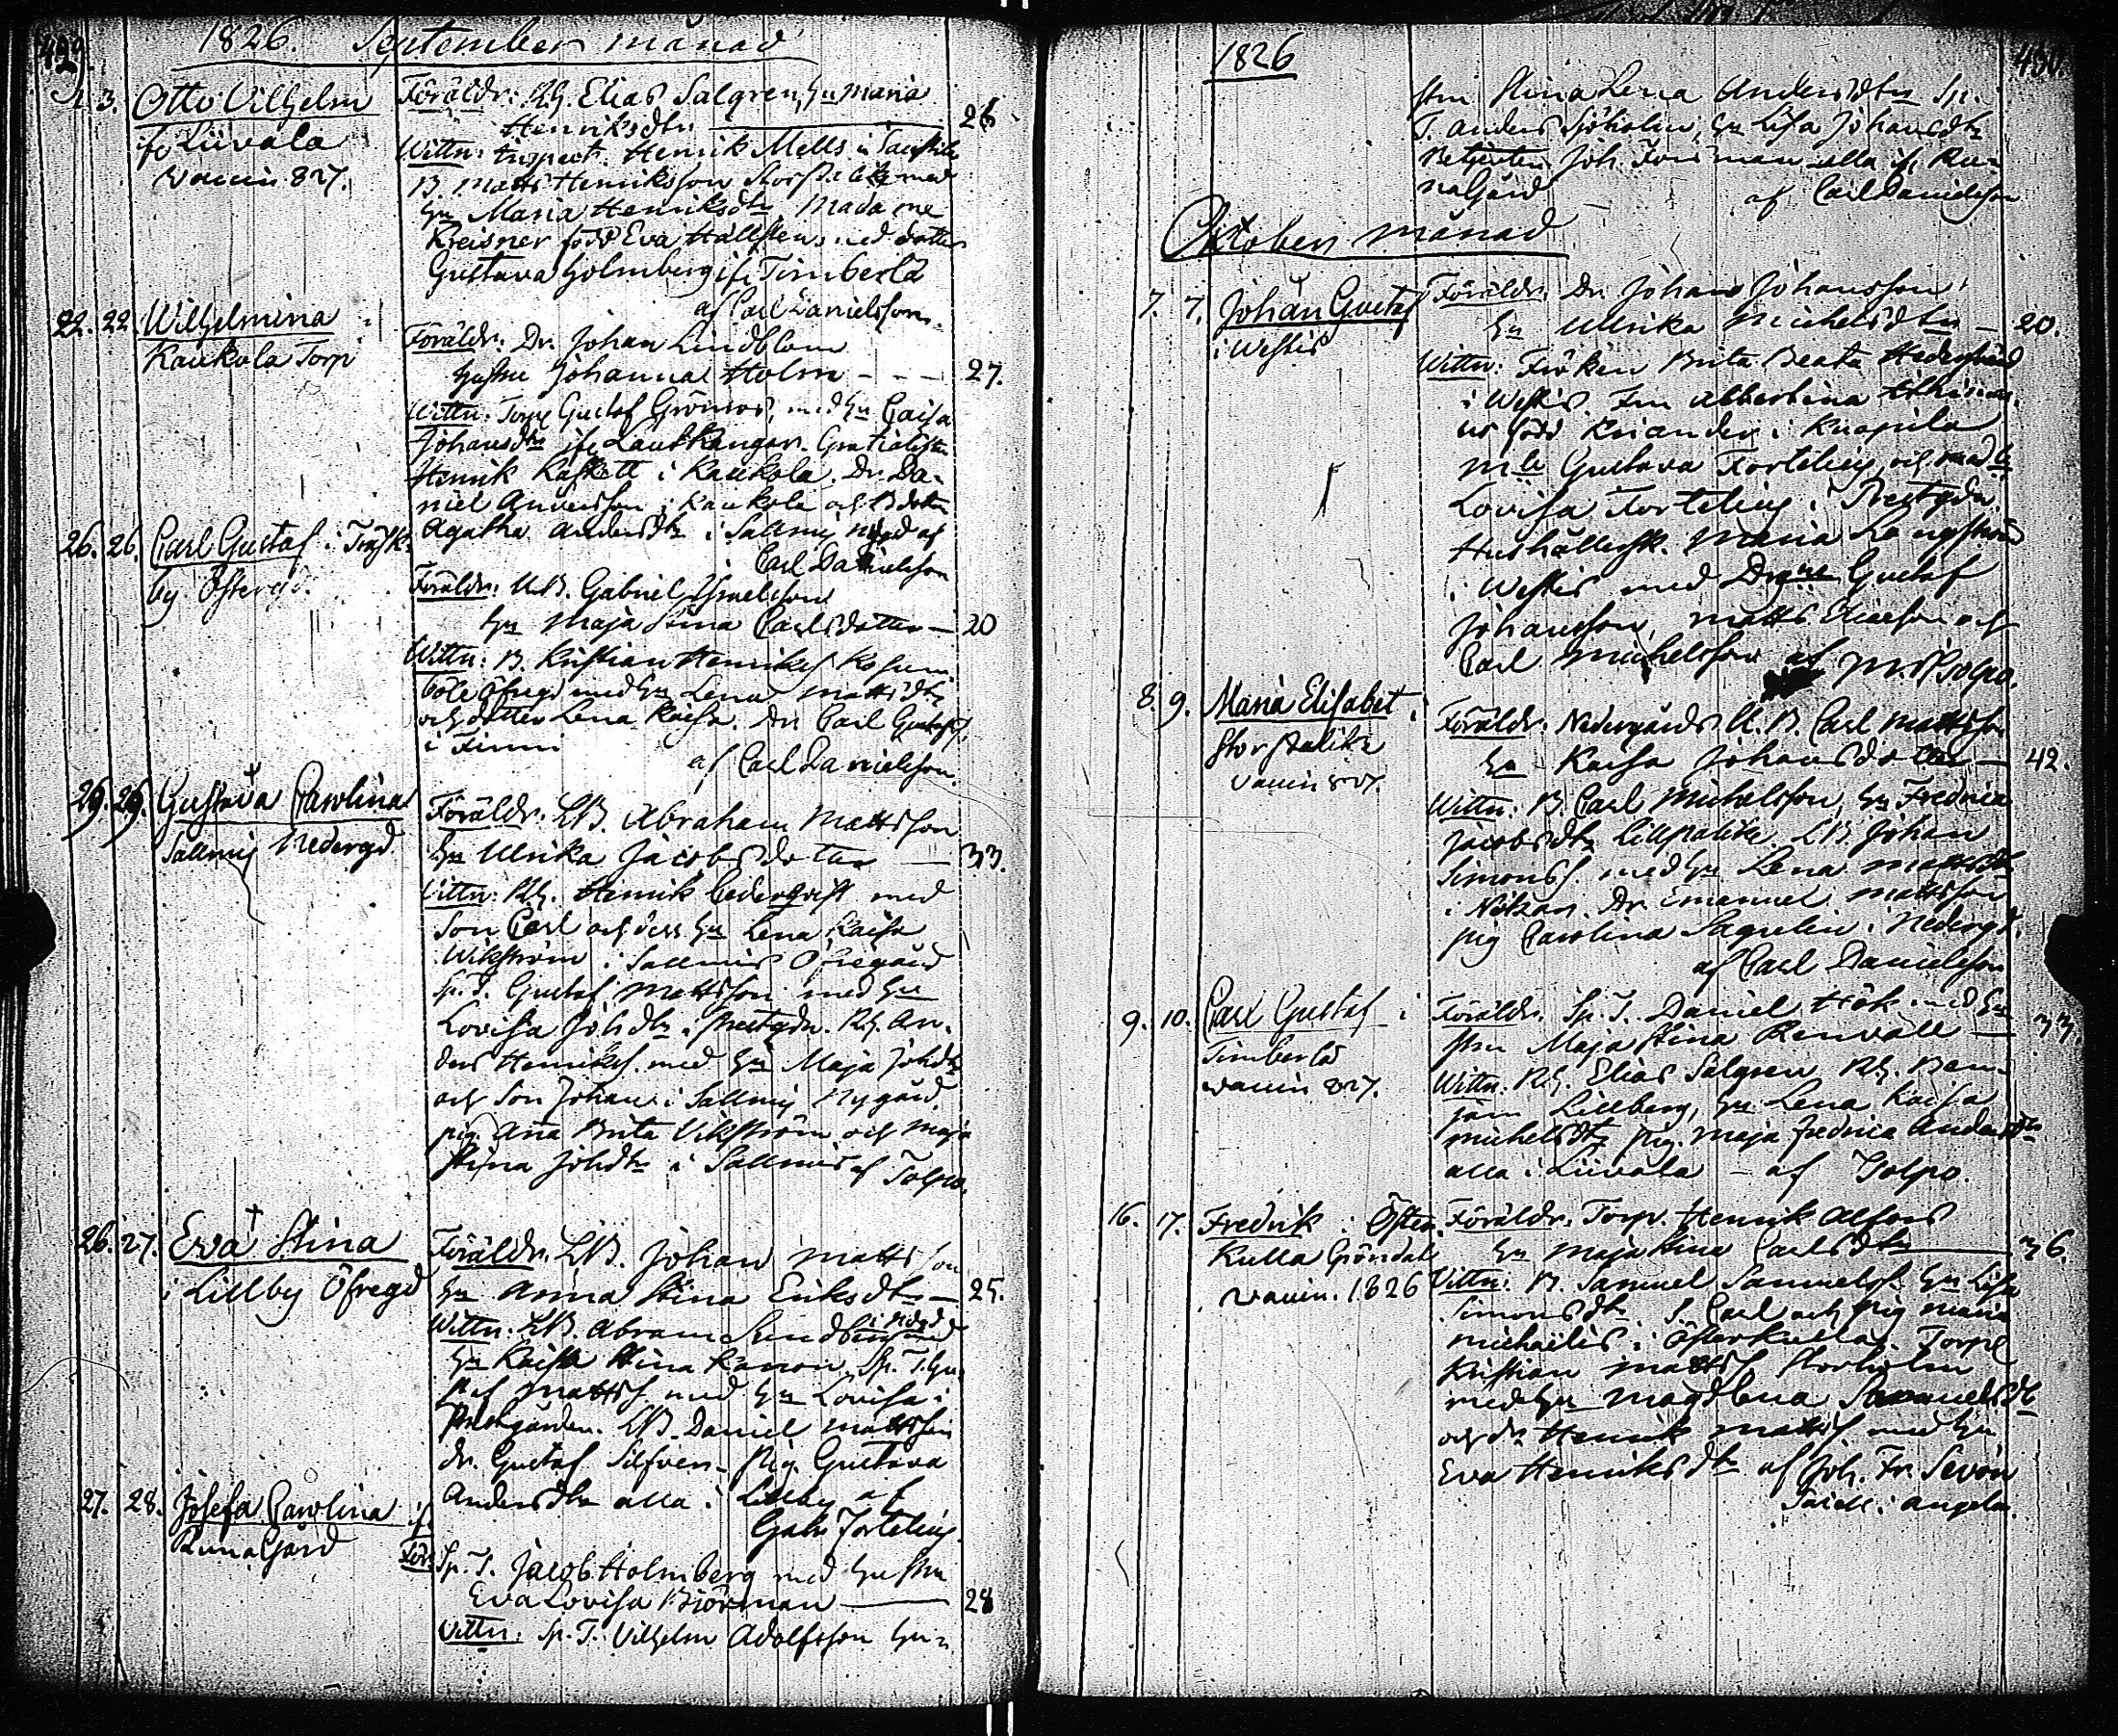 429.
1826. September månad
1. 3. Otto Vilhelm
ifr Liivala
vaccin 827.
Föräldr: RG. Elias Salgren, Hu Maria
Henriksdtr. 26
Wittn: inspect. Henrik Mells i
B. Matts Henriksson med
Hu Maria Henriksdtr Madame
Kreisner född Eva Hällsten med dotter
Gustava Holmberg ifr Timberlä
af Carl Danielsson.
22. 22. Wilhelmina i
Kaukola Torp
Föräldr: Dr. Johan Lindblom
hustru Johanna Holm - - - 27.
Wittn: Torp Gustaf Grönroos, med Hu Caisa
Johansdtr ifr Lautkangar. Gratialisten
Henrik i Kaukola. Dr. Da-
niel Andersson i Kaukola och B dotter
Agatha Andersdtr i Sallmij af
Carl Danielsson
26. 26. Carl Gustaf i Träsk-
by Östergd.
Föräldr: U.B. Gabriel Ismelsson
Hu Maja Stina Carlsdotter - 20
Wittn: B. Kristian Henrikss
böle Öfregd med Hu Lena Mattsdtr
och dotter Lena Kaisa. Dr. Carl Gustafss.
i Finni
af Carl Danielsson.
29. 29. Gustava Carolina
Sallmij Nedergd.
Föräldr: LB. Abraham Mattsson
Hu Ulrika Jacobsdotter - 33.
Vittn: RG. Henrik Cederqvist med
Son Carl och dess Hu Lena Kaisa
Wikström i Sallmis Öfregård
Sp. T. Gustaf Mattsson med Hu
Lovisa Johdtr i Prestgdn. RG. An-
ders Henrikss. med Hu Maja Johdtr
och Son Johan i Sallmij Nygård.
pig. Anna Brita Vikström och Maja
Stina Johdtr i Sallmis af Tolpo.
26. 27. Eva Stina
i Lillby Öfregd
Föräldr. LB. Johan Mattsson
Hu Anna Stina Eriksdtr - 25.
Wittn. LB. Abram i Ndgd
Hu Kaisa Stina Sp. T. Gu-
staf Mattss med Hu Lovisa i
Prestgården. LB. Daniel Mattsson
dr. Gustaf Silfven - Pig. Gustava
Andersdtr alla i Lillby af
Gabr Forteliug
27. 28. Josefa Carolina ifr
Runagård
Förä Sp. T. Jacob Holmberg med hustru
Eva Lovisa Björman - 28
Vittn: Sp. T. Vilhelm Adolfsson Hu-
430.
1826
stru Stina Lena Andersdtr Sp.
T. Anders Sjöholm, Hu Lisa Johansdtr
Betjenten Joh. Forsman alla ifr Ru-
nagård af Carl Danielsson
October månad
7. 7. Johan Gustaf
i Westis
Föräldr. Dr. Johan Johansson
Hu Ulrika Michelsdtr - 20.
Wittn: Fröken Brita Beata
i Westis. Fru Albertina
us född Kriander i Knapila
Mlle Gustava Forteliug och Madlle
Lovisa Forteliug i Prestgdn
Hushållersk. Maria Långström
i Westis med Drgne Gustaf
Johansson, Matts Eliasson och
Carl Michelsson af M. Tolpo.
8. 9. Maria Elisabet i
Storpatike
vaccin 827.
Föräldr: Nedergårds U.B. Carl Mattsson
Hu Kaisa Johansdotter - 42.
Wittn: B. Carl Michelsson, Hu Fredrica
Jacobsdtr Lillpatike LB. Johan
Simonss. med Hu Lena Mattsdtr
i Nötkar. Dr Emanuel Mattsson
pig Carolina Sagrelin i Nedergd.
af Carl Danielsson
9. 10. Carl Gustaf i
Timberlä
vaccin 827.
Föräldr. Sp. T. Daniel Hök med Hu
stru Maja Stina Renvall - 33.
Wittn: RG. Elias Salgren RG. Ben-
jam Lillberg, Hu Lena Kaisa
Michelsdtr pig. Maja Fredrica Andersdtr
alla i Liivala - af Tolpo.
16. 17. Fredrik i Öster-
Kulla Gröndal
vaccin. 1826
Föräldr. Torp. Henrik Alfors
Hu Maja Stina Carlsdtr 36.
Vittn: B. Samuel Samuelss. Hu Lisa
Simonsdtr S. Carl och pig Maria
Michaelis i Österkulla. Torp
Kristian Mattss Storholm
med Hu Magdlena Samuelsdtr
och dr Henrik Mattss med Hu
Eva Henriksdtr af Joh. Fr. Sevón
Sacell: i Angela.